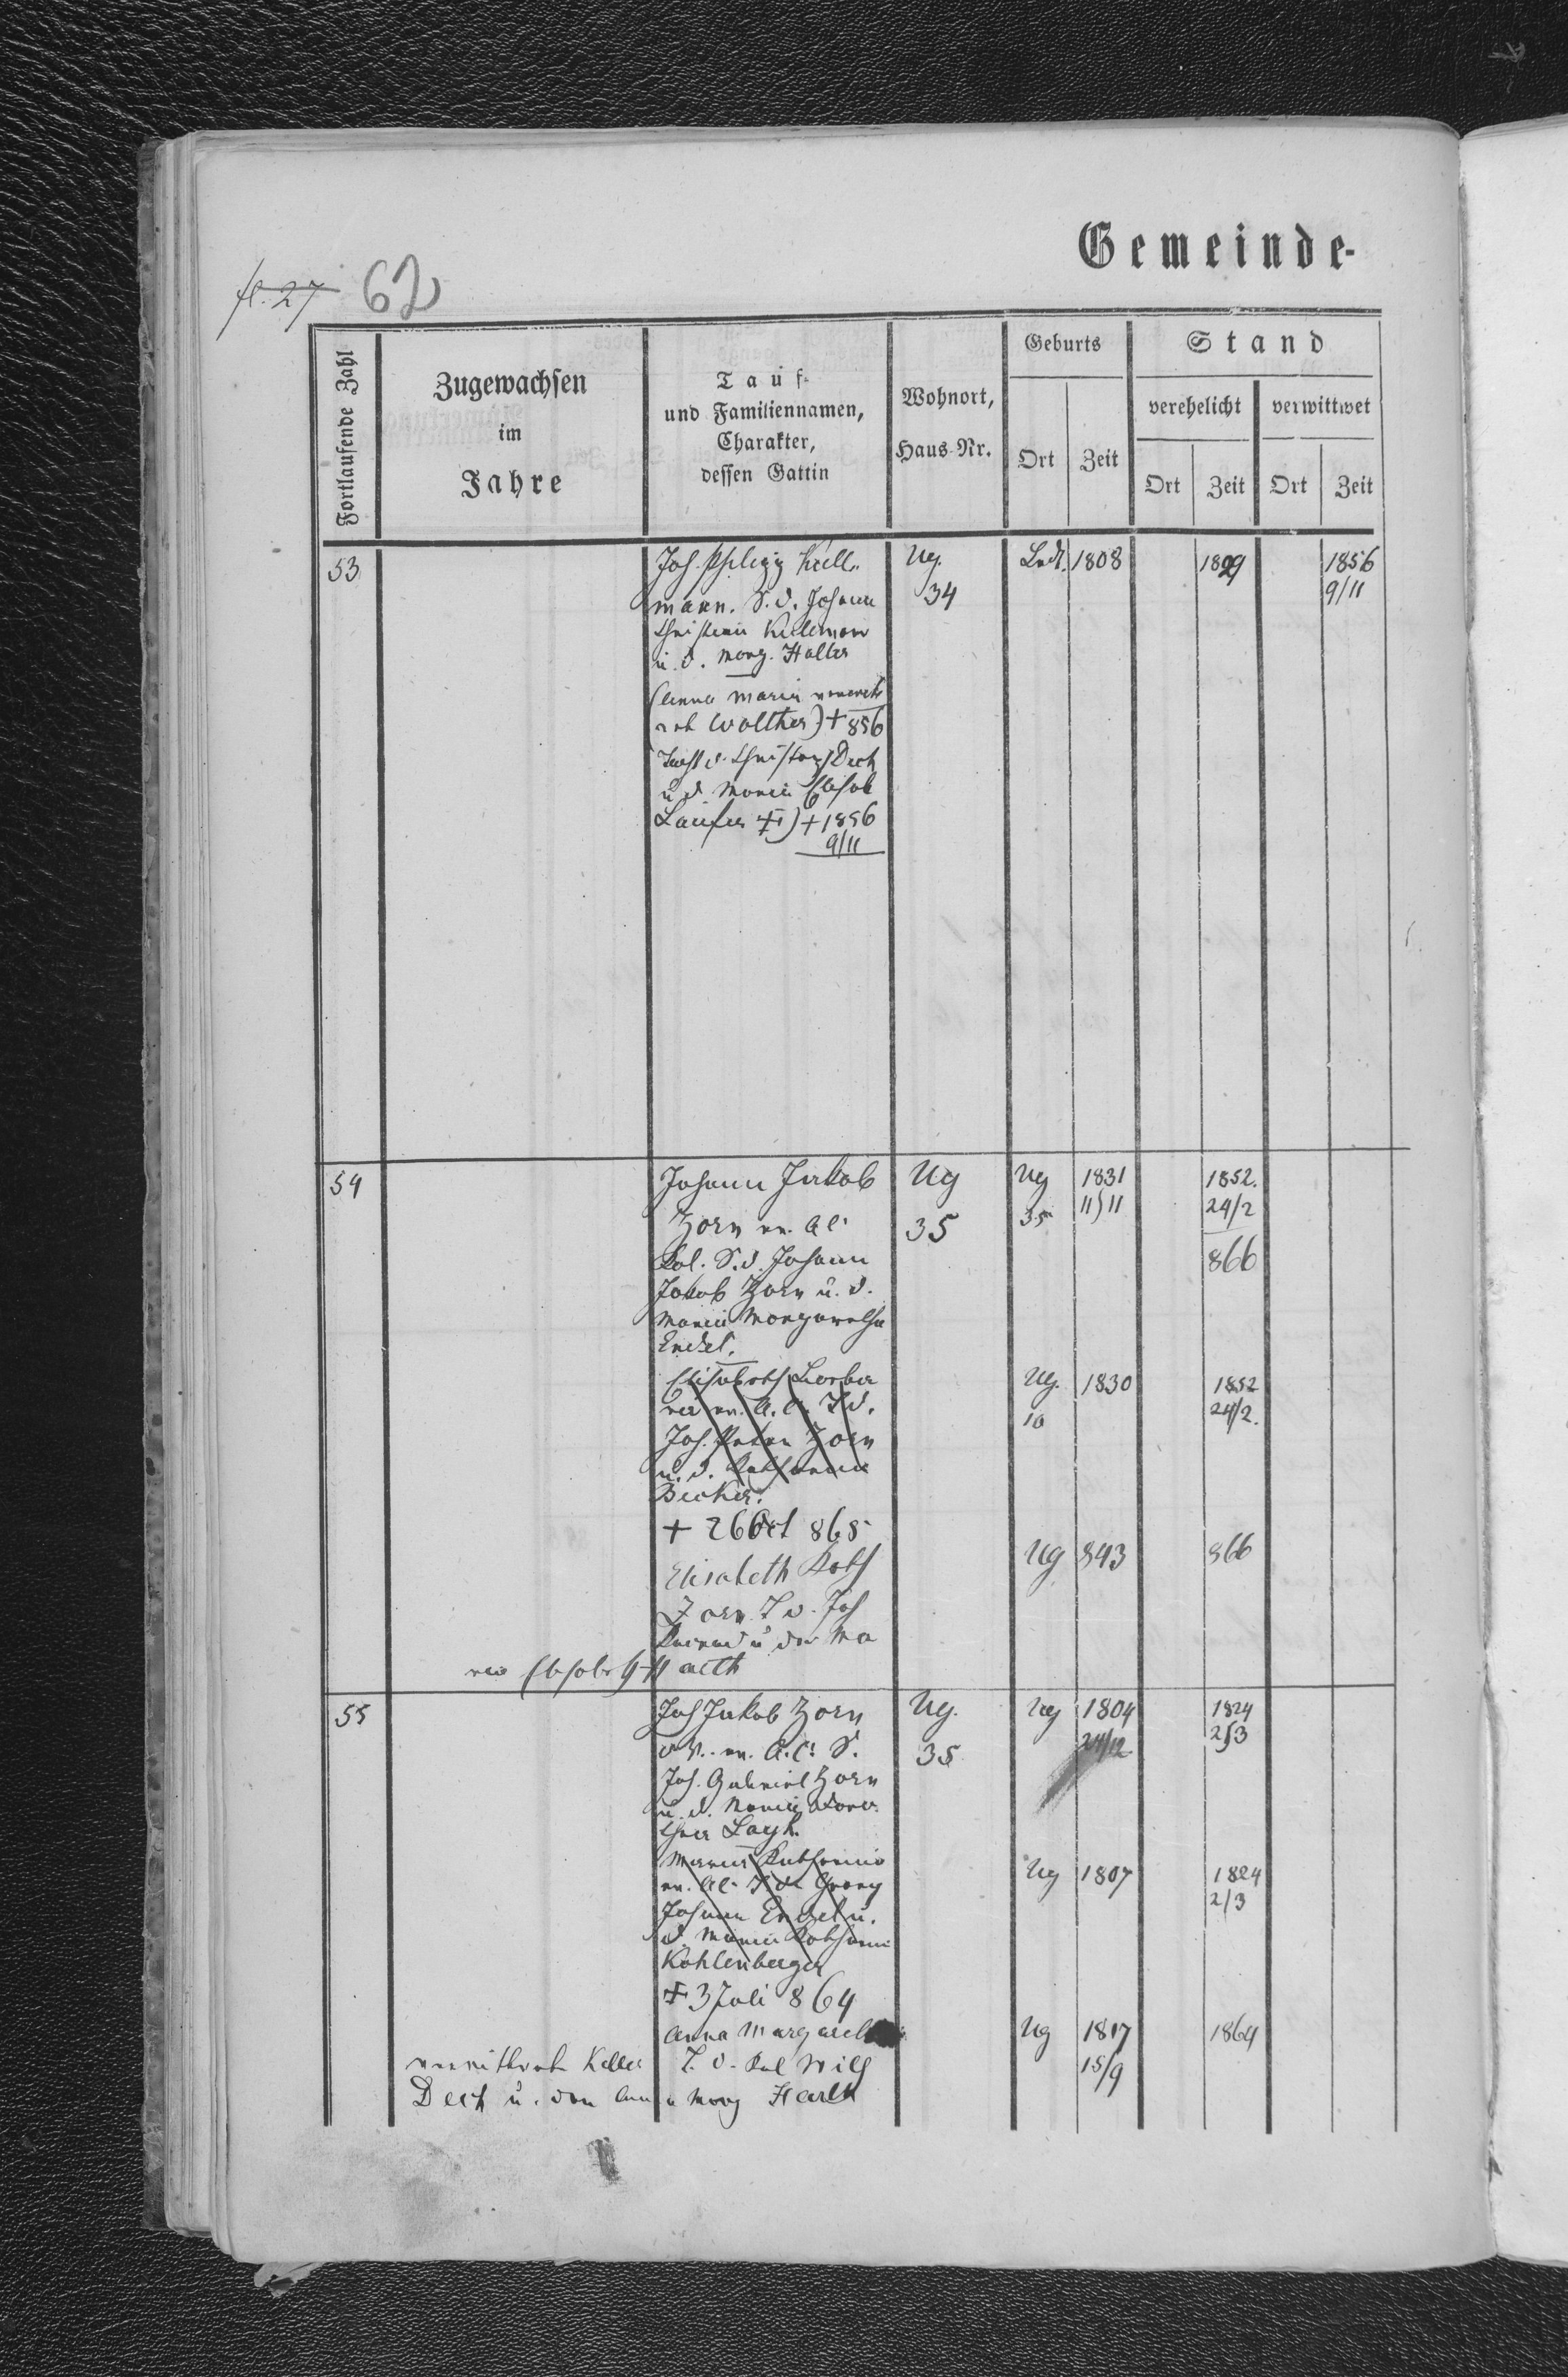 Gemeinde-
fl. 27 62
Fortlaufende Zahl
Zugewachsen
im
Jahre
Tauf-
und Familiennamen,
Charakter,
dessen Gattin
Wohnort,
Haus-Nr.
Geburts
Ort Zeit
Stand
verehelicht verwittwet
Ort Zeit Ort Zeit
53 Joh. Philipp Kell- Ug. 1808 1829 1856
mann. S. d. Johann 34 9/11
Christian Kellmann
u. d. Marg. Haller
(Anna Maria
Walther) + 856
Deck
u. d. Maria Elisab
Laufer +) + 1856
9/11
54 Johann Jakob Ug Ug 1831 1852.
Zorn 35 35 11/11 24/2
Kol. S. d. Johann 866
Jakob Zorn u. d.
Maria Margaretha
Endel.
Elisabeth Barba Ug. 1830 1852
ra A. C. T. d. 10 24/2.
Joh. Peter Zorn
u. d. Katharina
Becker.
+ 26 Oct 865
Elisabeth Kath Ug 843 866
Zorn T. d. Joh
Konrad u der Ma
ria
55 Joh Jakob Zorn Ug. Ug 1804 1824
A. C. S. 35 24/12 2/3
Joh. Gabriel Zorn
u. d. Maria Doro
thea
Maria Katharina Ug 1807 1824
A C T. d. Georg 2/3
Johann Endel u.
d. Maria Katharina
Kohlenberger
+ 3 Juli 864
Anna Margareth Ug 1817 1864
Keller T. d. Karl Wilh 15/9
Dech u. der Anna Marg